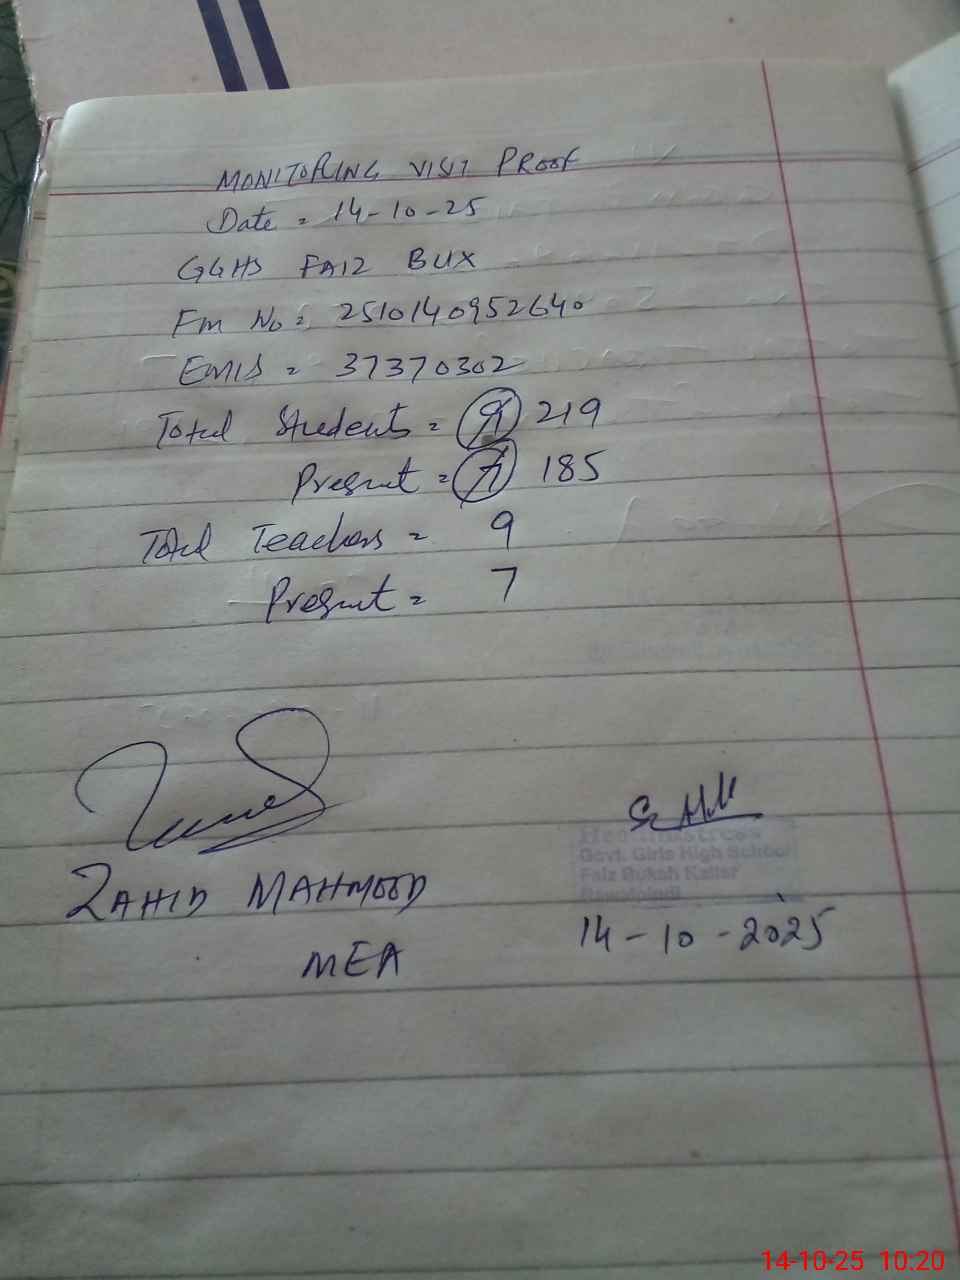 MONITORING VISIT PROOF
Date = 14-10-25
GGHS FAIZ BUX
Fm No = 2510140952640
EMIS = 37370302
Total Students = 219
Present = 185
Total Teachers = 9
Present = 7
ZAHID MAHMOOD
MEA
Headmistress
Govt. Girls High School
Faiz Buksh Kallar
Rawalpindi
14-10-2025
14-10-25 10:20